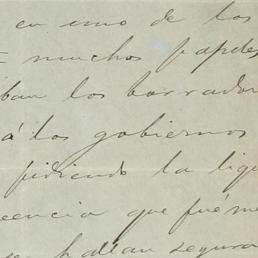 en uno de los
= muchos papeles
ban los borrador
á los gobiernos
pidiendo la liqu
eencia que fué me
se hallan segura